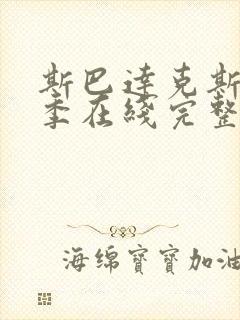 斯巴達克斯
季在綫完整
海绵寶寶加油